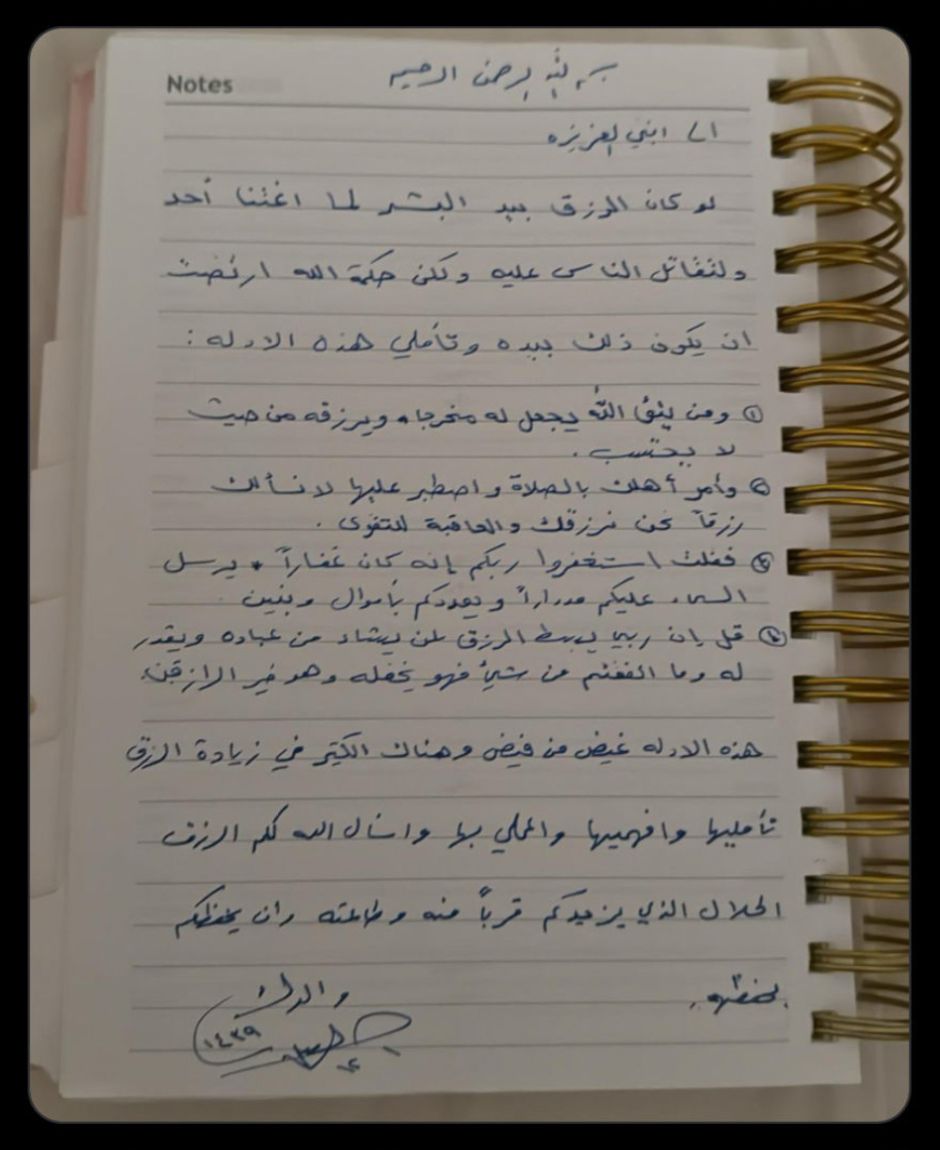 Notes
بسم الله الرحمن الرحيم
الى ابنتي العزيزه
لو كان الرزق بيد البشر لما اغتنا أحد
ولتقاتل الناس عليه ولكن حكمة الله ارتضت
ان يكون ذلك بيده وتأملي هذه الادله :
١ ومن يتق الله يجعل له مخرجا * ويرزقه من حيث
لا يحتسب .
٢ وأمر أهلك بالصلاة واصطبر عليها لا نسألك
رزقاً نحن نرزقك والعاقبة للتقوى .
٣ فقلت استغفروا ربكم إنه كان غفاراً * يرسل
السماء عليكم مدراراً ويمددكم بأموال وبنين .
٤ قل إن ربي يبسط الرزق لمن يشاء من عباده ويقدر
له وما انفقتم من شيئ فهو يخلفه وهو خير الرازقين .
هذه الادله غيض من فيض وهناك الكثير في زيادة الرزق
تأمليها وافهميها واعملي بها واسأل الله لكم الرزق
الحلال الذي يزيدكم قرباً منه وطاعته وان يحفظكم
بحفظه ..
والدك
١٤٣٩